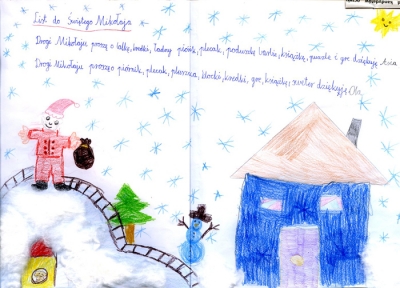 List do Świętego Mikołaja
Drogi Mikołaju proszę o lalkę, kredki, ładny piórnik, plecak, poduszkę, książkę, puzzle i grę dziękuję Asia
Drogi Mikołaju proszę o piórnik, plecak, pluszaka, klocki, kredki, grę, książkę, sweter dziękuję Ola